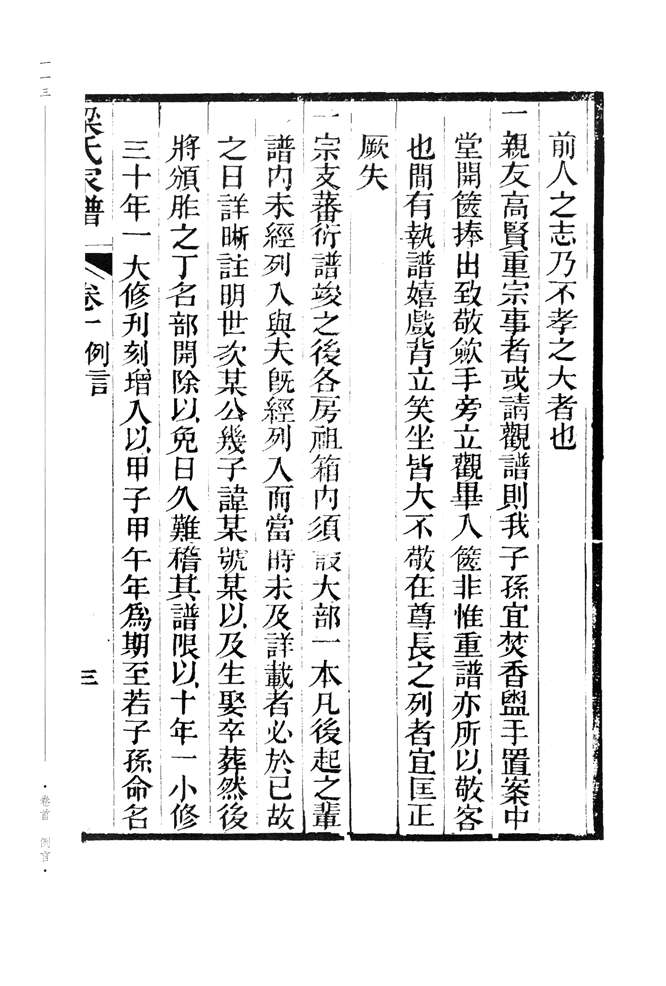 前人之志乃不孝之大者也
一親友高賢重宗事者或請觀譜則我子孫宜焚香盥手置案中
堂開篋捧出致敬歛手旁立觀畢入篋非惟重譜亦所以敬客
也間有執譜嬉戲背立笑坐皆大不敬在尊長之列者宜匡正
厥失
一宗支蕃衍譜竣之後各房祖箱內須設大部一本凡後起之輩
譜內未經列入與夫既經列入而當時未及詳載者必於已故
之日詳晰註明世次某公幾子諱某號某以及生娶卒葬然後
將頒胙之丁名部開除以免日久難稽其譜限以十年一小修
三十年一大修刋刻增入以甲子甲午年爲期至若子孫命名
梁氏家譜 卷一 例言 三
一一三
·卷首 例言·